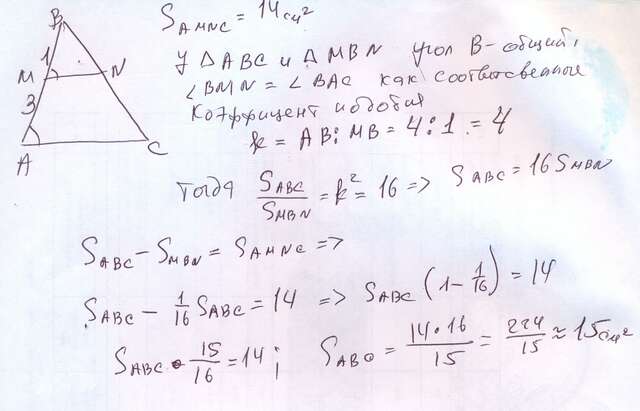 B
1
M
N
3
A
C
S_AMNC = 14 см²
У △ABC и △MBN угол B - общий,
∠BMN = ∠BAC как соответсвенные
Коэффицент подобия
k = AB : MB = 4 : 1 = 4
Тогда S_ABC / S_MBN = k² = 16 => S_ABC = 16 S_MBN
S_ABC - S_MBN = S_AMNC =>
S_ABC - 1/16 S_ABC = 14 => S_ABC (1 - 1/16) = 14
S_ABC • 15/16 = 14 ; S_ABC = 14•16/15 = 224/15 ≈ 15 см²